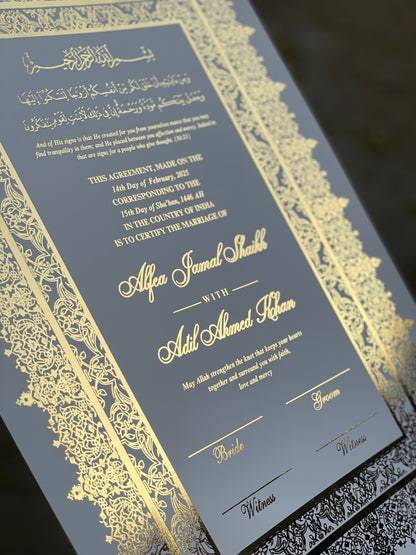 بِسْمِ اللَّهِ الرَّحْمَٰنِ الرَّحِيمِ
وَمِنْ آيَاتِهِ أَنْ خَلَقَ لَكُم مِّنْ أَنفُسِكُمْ أَزْوَاجًا لِّتَسْكُنُوا إِلَيْهَا
وَجَعَلَ بَيْنَكُم مَّوَدَّةً وَرَحْمَةً إِنَّ فِي ذَٰلِكَ لَآيَاتٍ لِّقَوْمٍ يَتَفَكَّرُونَ
And of His signs is that He created for you from yourselves mates that you may
find tranquility in them; and He placed between you affection and mercy. Indeed in
that are signs for a people who give thought. (30:21)
THIS AGREEMENT, MADE ON THE
14th Day of February, 2025
CORRESPONDING TO THE
15th Day of Sha'ban, 1446 AH
IN THE COUNTRY OF INDIA
IS TO CERTIFY THE MARRIAGE OF
Alfea Jamal Shaikh
WITH
Adil Ahmed Khan
May Allah strengthen the knot that keeps your hearts
together and surround you with faith,
love and mercy
Bride
Groom
Witness
Witness